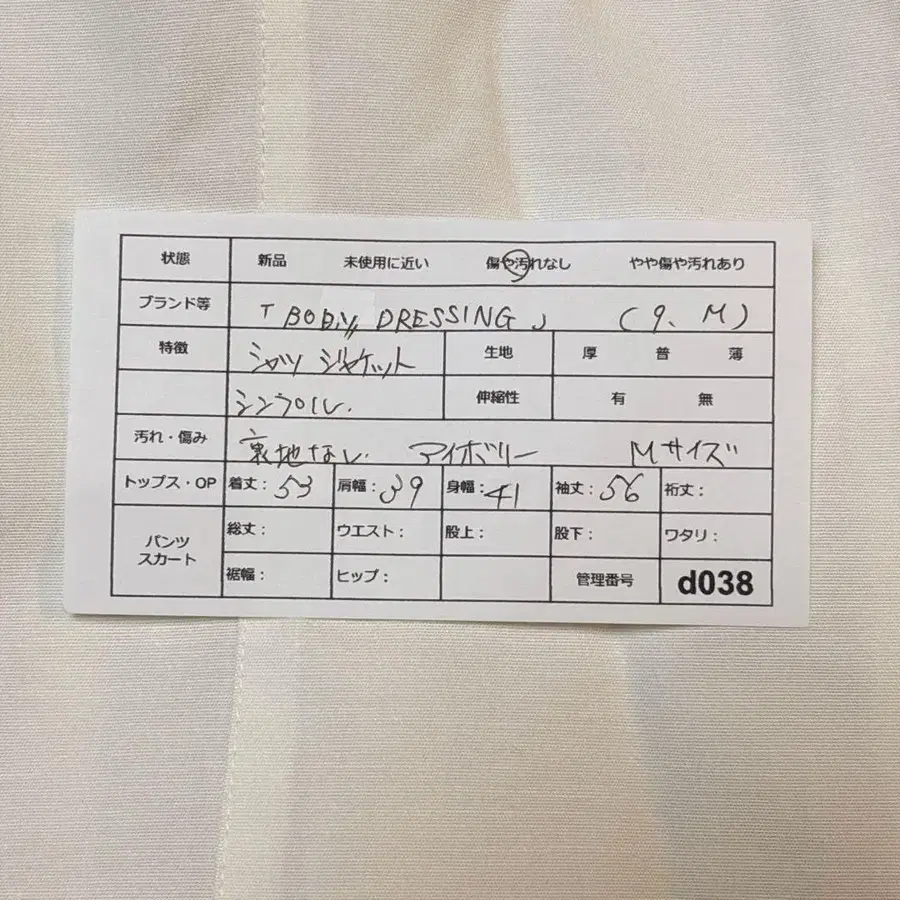 状態 新品 未使用に近い 傷や汚れなし やや傷や汚れあり
ブランド等 「BODY DRESSING」 (9、M)
特徴 シャツジャケット 生地 厚 普 薄
シンプル. 伸縮性 有 無
汚れ・傷み 裏地なし. アイボリー Mサイズ
トップス・OP 着丈：53 肩幅：39 身幅：41 袖丈：56 裄丈：
パンツ スカート 総丈： ウエスト： 股上： 股下： ワタリ：
裾幅： ヒップ： 管理番号 d038